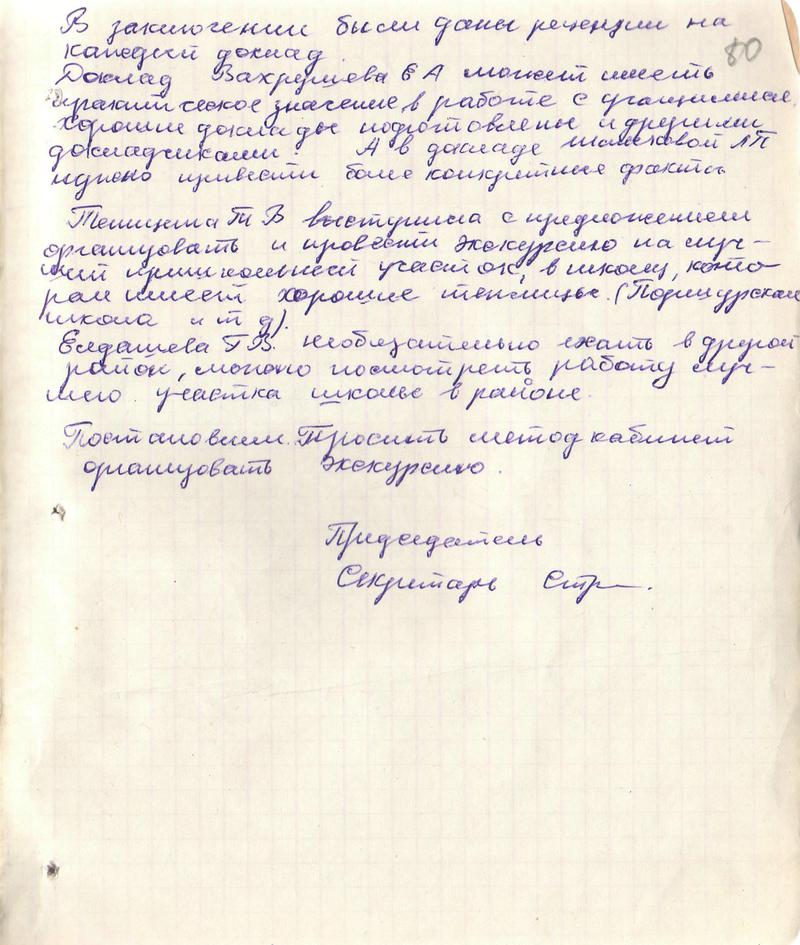 В заключении были даны рецензии на
каждый доклад.
80
Доклад Вахрушева Е А может иметь
практическое значение в работе с учащимися.
Хорошие доклады подготовлены и другими
докладчиками. А в докладе ЛП
нужно привести более конкретные факты
Т В выступила с предложением
организовать и провести экскурсию на луч-
ший пришкольный участок, в школу, кото-
рая имеет хорошие теплицы. (
школа и т д).
Елдашева Г В. необязательно ехать в другой
район, можно посмотреть работу луч-
шего участка школы в районе.
Постановили. Просить метод кабинет
организовать экскурсию.
Председатель
Секретарь